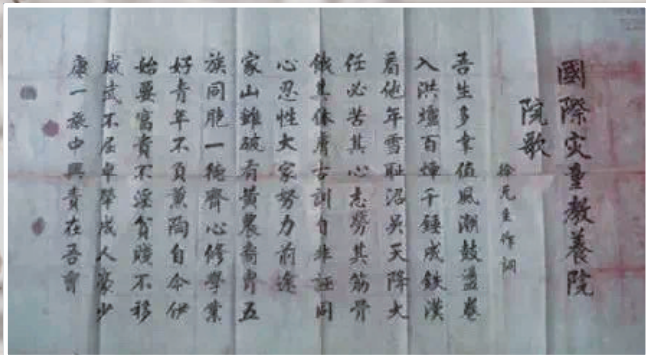 國際灾童教養院
院歌
徐元圭作詞
吾生多幸值風潮鼓盪卷
入洪爐百煉千錘成鉄漢
看他年雪恥沼吳天降大
任必苦其心志勞其筋骨
餓其体膚古訓自非誣同
心忍性大家努力前途
家山雖破有黃農裔冑五
族同胞一德齊心修學業
好青年不負薰陶自今伊
始要富貴不淫貧賤不移
威武不屈卓犖成人夏少
康一旅中興責在吾曹